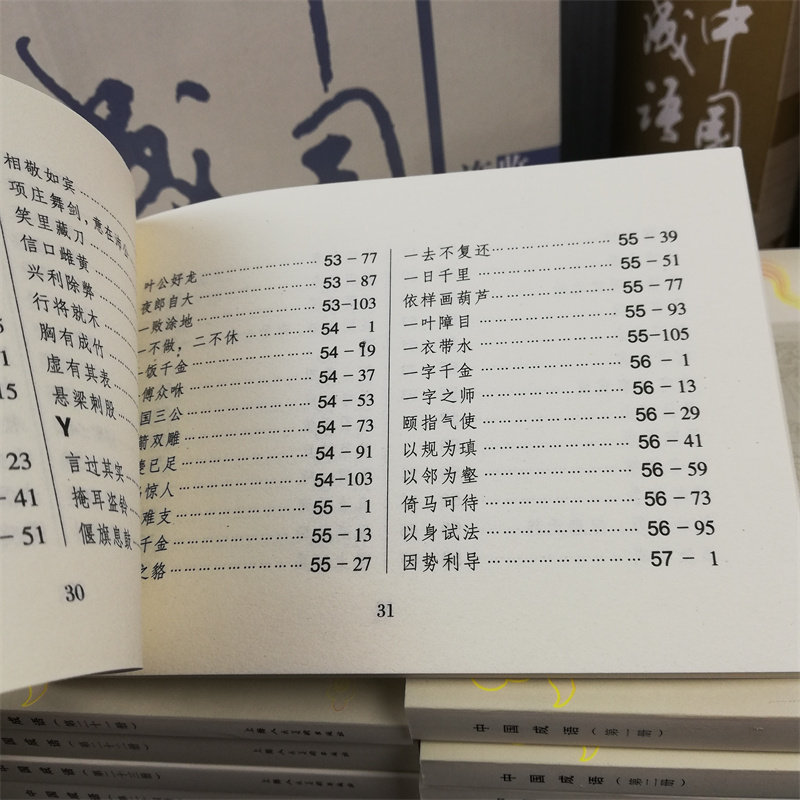 成语
中国成语
相敬如宾
项庄舞剑，意在沛公
笑里藏刀
信口雌黄
兴利除弊
行将就木
胸有成竹
虚有其表
悬梁刺股
Y
言过其实
掩耳盗铃
偃旗息鼓
1
15
23
－41
－51
30
叶公好龙 53－77
夜郎自大 53－87
一败涂地 53－103
一不做，二不休 54－1
一饭千金 54－19
傅众咻 54－37
国三公 54－53
箭双雕 54－73
已足 54－91
惊人 54－103
难支 55－1
千金 55－13
之貉 55－27
一去不复还 55－39
一日千里 55－51
依样画葫芦 55－77
一叶障目 55－93
一衣带水 55－105
一字千金 56－1
一字之师 56－13
颐指气使 56－29
以规为瑱 56－41
以邻为壑 56－59
倚马可待 56－73
以身试法 56－95
因势利导 57－1
31
成语（第二十一册） 上海人民美术出版社
国成语（第二十二册） 上海人民美术出版社
中国成语（第二十三册） 上海人民美术出版社
中国成语（第一册）
中国成语（第二册）